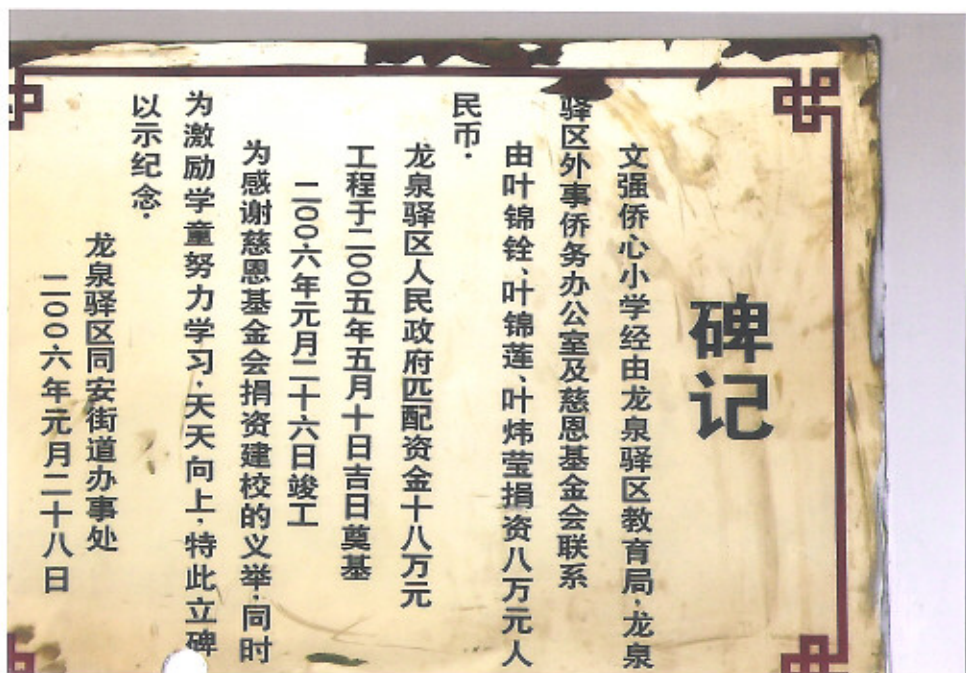 碑记
文强侨心小学经由龙泉驿区教育局.龙泉
驿区外事侨务办公室及慈恩基金会联系
由叶锦铨、叶锦莲、叶炜莹捐资八万元人
民币.
龙泉驿区人民政府匹配资金十八万元
工程于二00五年五月十日吉日奠基
二00六年元月二十六日竣工
为感谢慈恩基金会捐资建校的义举.同时
为激励学童努力学习.天天向上.特此立碑
以示纪念.
龙泉驿区同安街道办事处
二00六年元月二十八日